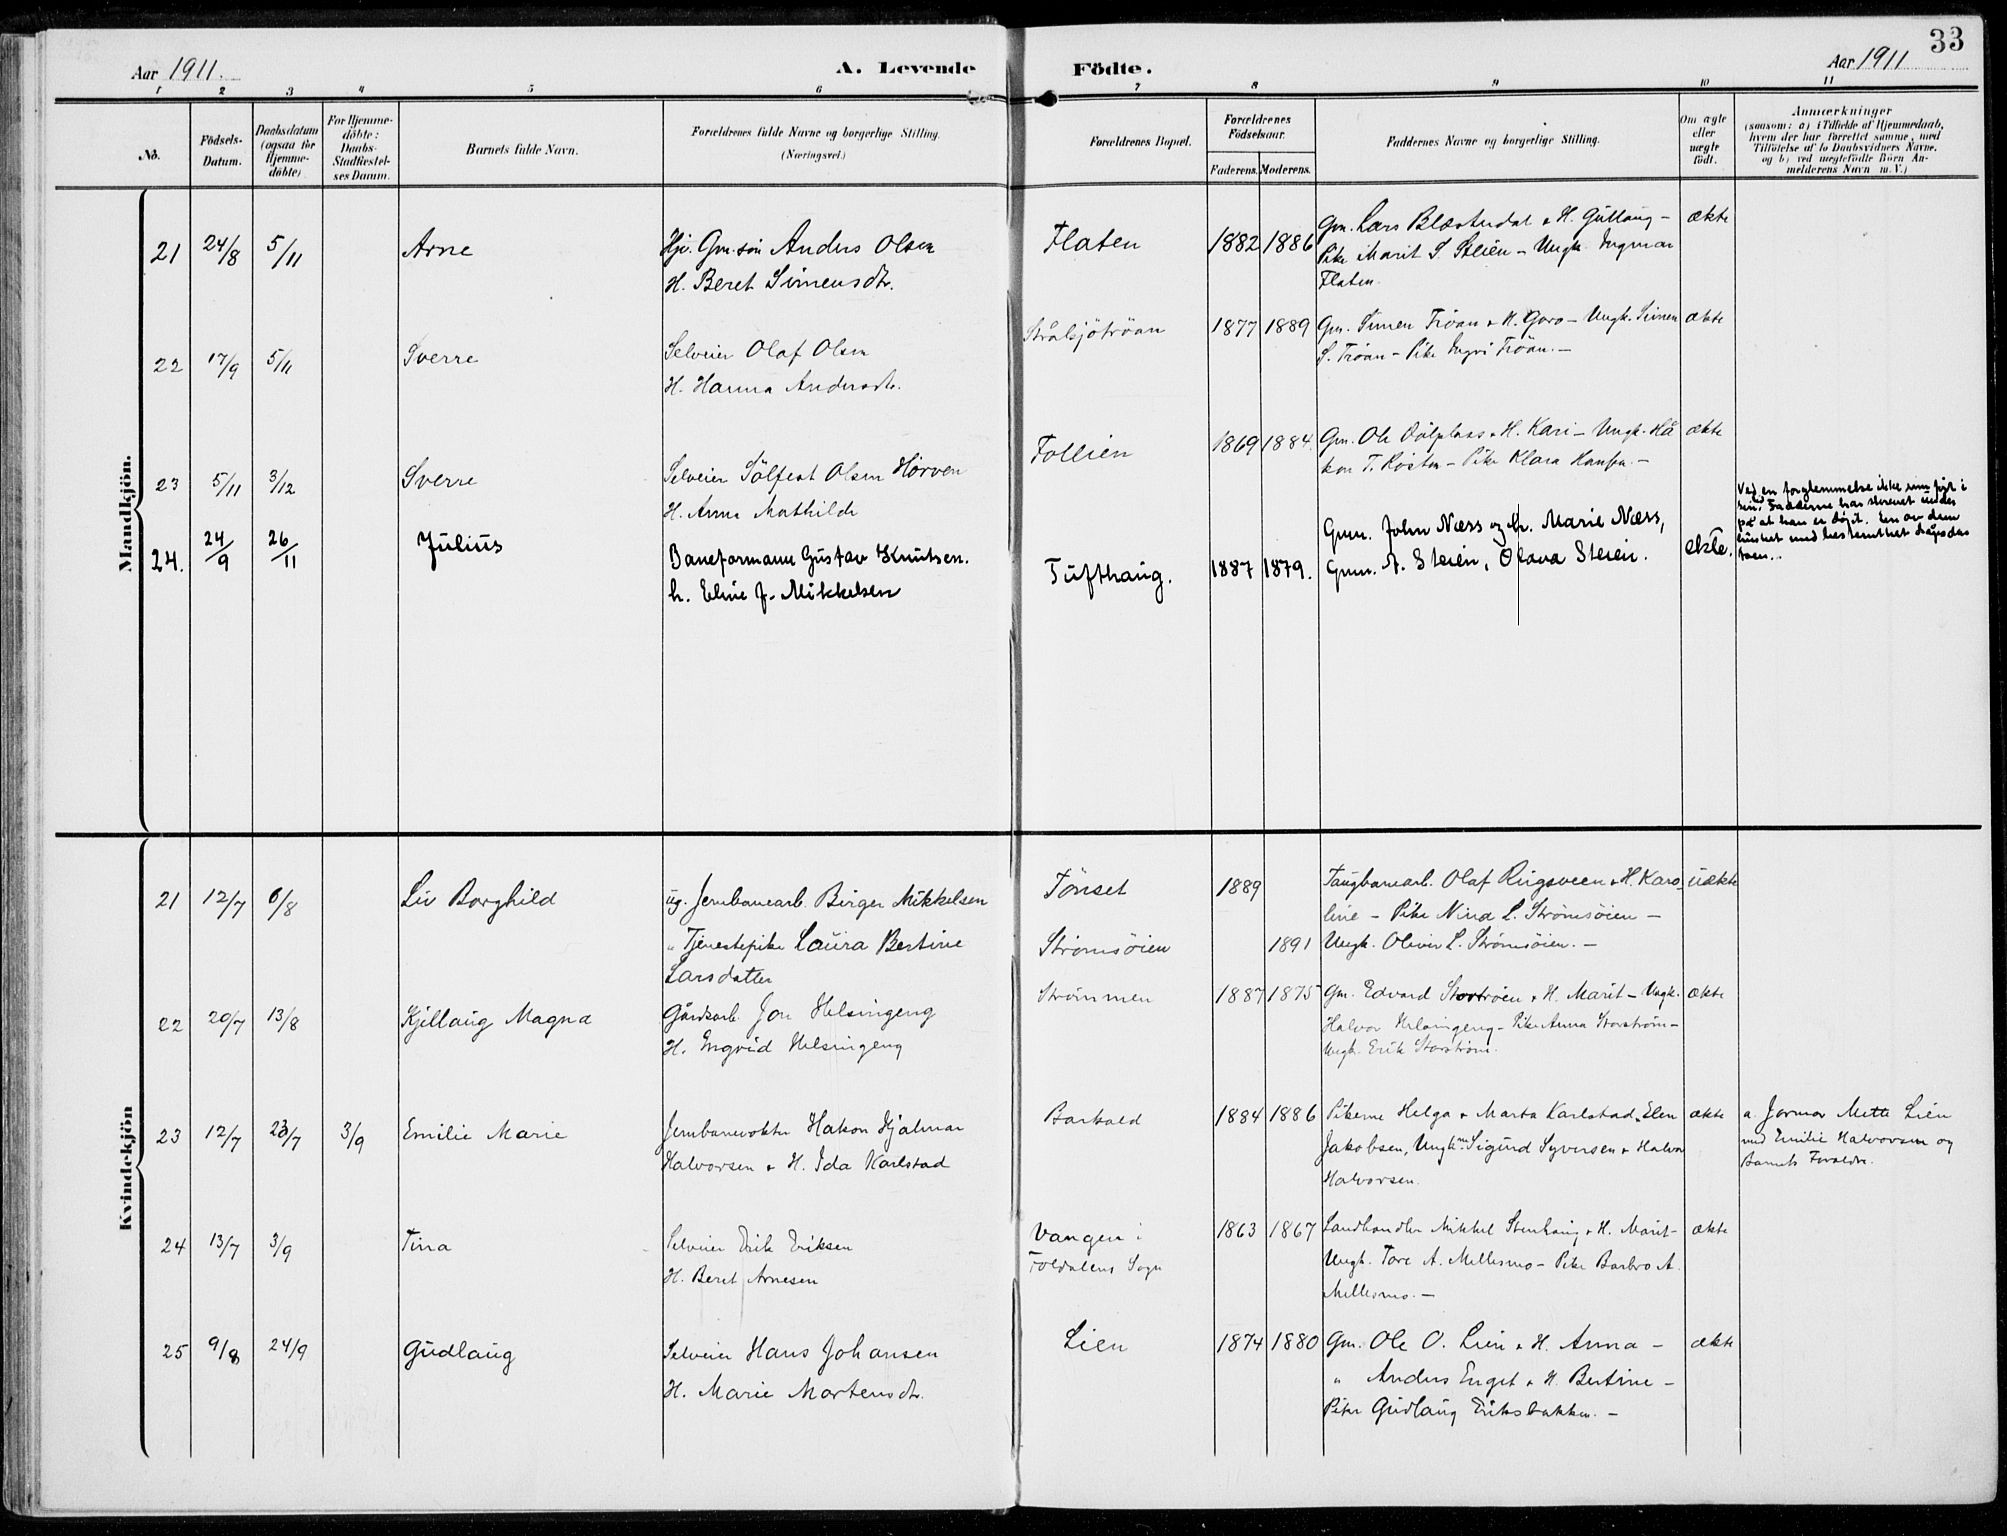 33
Aar 1911.
A. Levende Födte.
Aar 1911
1 2 3 4 5 6 7 8 9 10 11
No.
Födsels-Datum.
Daabsdatum (ogsaa for Hjemme-döbte)
For Hjemme-döbte: Daabs-Stadfæstel-ses Datum.
Barnets fulde Navn.
Forældrenes fulde Navne og borgerlige Stilling.
(Næringsvei.)
Forældrenes Bopæl.
Forældrenes Födselsaar.
Faderens. Moderens.
Faddernes Navne og borgerlige Stilling.
Om ægte eller uægte födt.
Anmærkninger
(saasom: a) i Tilfælde af Hjemmedaab,
hvem der har forrettet samme, med
Tilföielse af to Daabsvidners Navne,
og b) ved uægtefödte Börn An-
melderens Navn m. V.)
Mandkjön.
21 24/8 5/11 Arne
Hjv. Gm.søn Anders Olsen
H. Beret Simensdtr.
Flaten 1882 1886
Gm. Lars Blæsterdal & H. Gullaug –
Pike Marit S. Steien – Ungk. Ingmar
Flaten.
ækte
22 17/9 5/11 Sverre
Selveier Olaf Olsen
H. Hanna Andersdtr.
Stråsjötröan 1877 1889
Gm. Simen Tröan & H. Goro – Ungk. Simen
S. Tröan – Pike Ingri Tröan. –
ækte
23 5/11 3/12 Sverre
Selveier Sölfest Olsen Hörven
H. Anna Mathilde
Follien 1869 1884.
Gm. Ole Dölplass & H. Kari – Ungk. Hå
kon T. Røsten – Pike Klara Hansen. –
ækte
24. 24/9 26/11 Julius
Baneformann Gustav Knutsen.
h. Eline J. Mikkelsen
Tufthaug. 1887 1879.
Gmn. John Næss og h. Marie Næss,
Gmn. A. Steien, Olava Steien.
ekte.
Ved en forglemmelse ikke innført i
sin tid. Fadderne har skrevet under
på at han er döpt. En av dem
husket med bestemthet dagsdatoen.
Kvindekjön
21 12/7 6/8 Liv Borghild
ug. Jernbanearb. Birger Mikkelsen
" Tjenestepike Laura Bertine
Larsdatter
Tönset 1889
Strömsöien 1891
Taugbanearb. Olaf Rugsveen & H. Karo
line – Pike Nina L. Strömsöien –
Ungk. Oliver L. Strömsöien. –
uækte
22 20/7 13/8 Kjellaug Magna
Gårdsarb. Jon Helsingeng
H. Engvid Helsingeng
Strömmen 1887 1875
Gm. Edvard Stortröen & H. Marit – Ungk.
Halvor Helsingeng – Pike Anna Storström –
Ungk. Erik Storström.
ækte
23 12/7 23/7 3/9 Emilie Marie
Jernbanevokter Hakon Hjalmar
Halvorsen & H. Ida Karlstad
Barkald 1884 1886
Pikerne Helga & Marta Karlstad, Elen
Jakobsen, Ungkne Sigurd Syversen & Halvor
Halvorsen.
ækte
a. Jormor Mette Lien
med Emilie Halvorsen og
Barnets Foreldre.
24 13/7 3/9 Tina
Selveier Erik Eriksen
H. Beret Arnesen
Vangen i
Foldalens Sogn
1863 1867
Landhandler Mikkel Stenhaug & H. Marit –
Ungk. Tore A. Mellesmo – Pike Barbro A.
Mellesmo. –
ækte
25 9/8 24/9 Gudlaug
Selveier Hans Johansen
H. Marie Mortensdtr.
Lien 1874 1880
Gm. Ole O. Lien & H. Anna –
" Anders Enget & H. Bertine –
Pike Gudlaug Eriksbakken. –
ækte